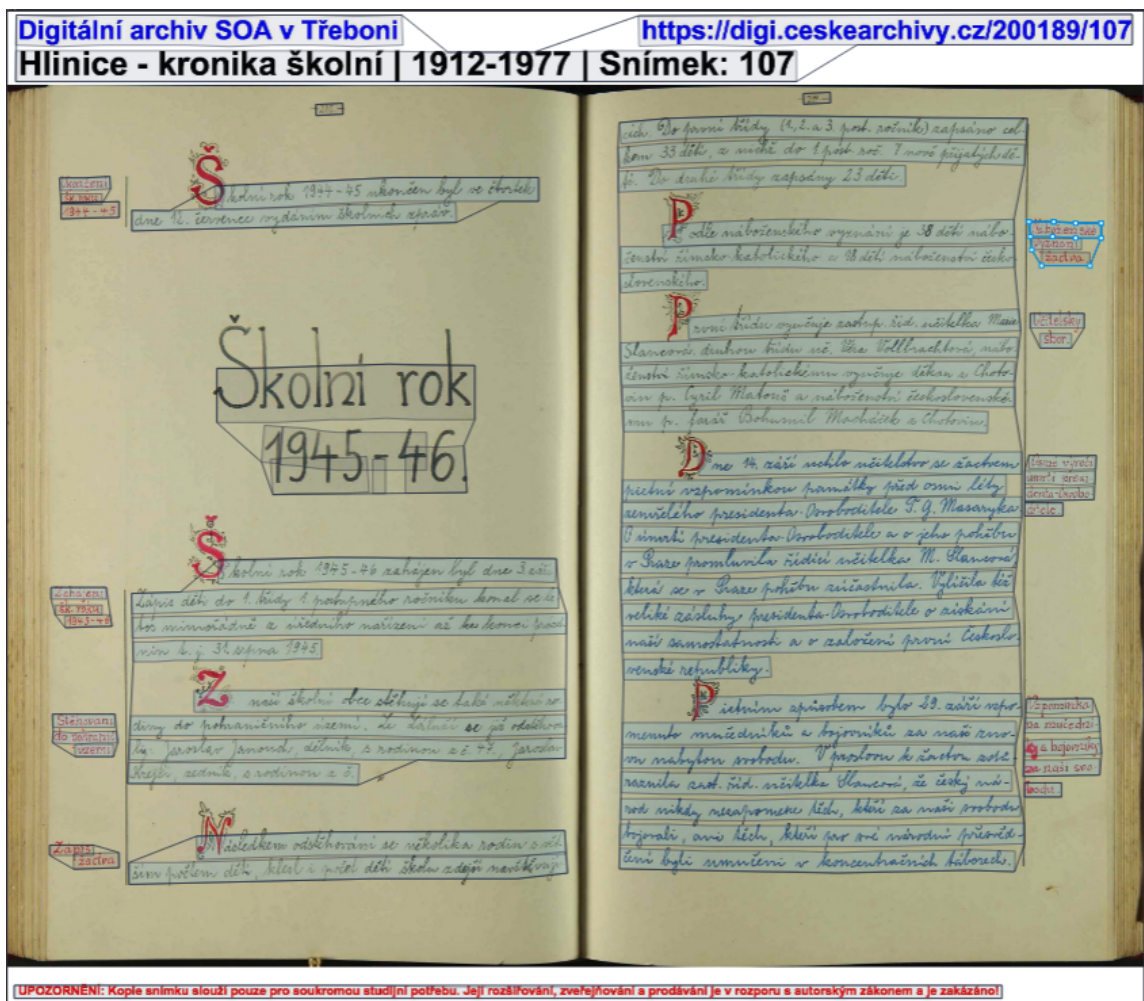 Digitální archiv SOA v Třeboni
https://digi.ceskearchivy.cz/200189/107
Hlinice - kronika školní | 1912-1977 | Snímek: 107
Ukončení
šk. roku
1944-45
Školní rok 1944-45 ukončen byl ve čtvrtek
dne 12. července vydáním školních zpráv.
Školní rok
1945-46.
Zahájení
šk. roku
1945-46
Školní rok 1945-46 zahájen byl dne 3. září.
Zápis dětí do 1. třídy 1. postupného ročníku konal se le-
tos mimořádně z úředního nařízení až ke konci prázd-
nin t. j. 31. srpna 1945.
Stěhování
do pohranič.
území
Z naší školní obce stěhují se také některé ro-
diny do pohraničního území. Ze Zálučí se již odstěhova-
ly: Jaroslav Janoud, dělník, s rodinou z č. 47, Jaroslav
Krejčí, zedník, s rodinou z č.
Zápis
žactva
Následkem odstěhování se několika rodin s vět-
ším počtem dětí, klesl i počet dětí školu zdejší navštěvují-
- 211. -
cích. Do první třídy (1., 2. a 3. post. ročník) zapsáno cel-
kem 33 dětí, z nichž do 1. post. roč. 7 nově přijatých dě-
tí. Do druhé třídy zapsány 23 děti.
Náboženské
vyznání
žactva
Podle náboženského vyznání je 38 dětí nábo-
ženství římsko-katolického a 18 dětí náboženství česko-
slovenského.
Učitelský
sbor.
První třídu vyučuje zastup. říd. učitelka Marie
Slancová, druhou třídu uč. Věra Vollbrachtová, nábo-
ženství římsko-katolickému vyučuje děkan z Choto-
vin p. Cyril Matouš a náboženství československé-
mu p. farář Bohumil Macháček z Chotovin.
úmrtí presi-
denta-Osvobo-
ditele
Dne 14. září uctilo učitelstvo se žactvem
pietní vzpomínkou památky před osmi léty
zemřelého presidenta-Osvoboditele T. G. Masaryka
O úmrtí presidenta-Osvoboditele a o jeho pohřbu
v Praze promluvila řídící učitelka M. Slancová
která se v Praze pohřbu zúčastnila. Vylíčila též
veliké zásluhy presidenta-Osvoboditele o získání
naší samostatnosti a o založení první Českoslo-
venské republiky.
Vzpomínka
na mučední-
ky a bojovníky
za naši svo-
bodu
Pietním způsobem bylo 29. září vzpo-
menuto mučedníků a bojovníků za naši zno-
vu nabytou svobodu. V proslovu k žactvu zdů-
raznila zast. říd. učitelka Slancová, že český ná-
rod nikdy nezapomene těch, kteří za naši svobodu
bojovali, ani těch, kteří pro své národní přesvěd-
čení byli umučeni v koncentračních táborech.
UPOZORNĚNÍ: Kopie snímku slouží pouze pro soukromou studijní potřebu. Její rozšiřování, zveřejňování a prodávání je v rozporu s autorským zákonem a je zakázáno!